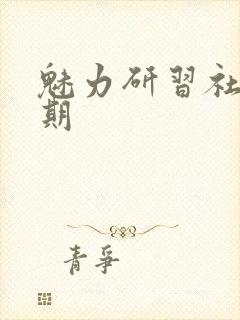 魅力研習社
期
青爭